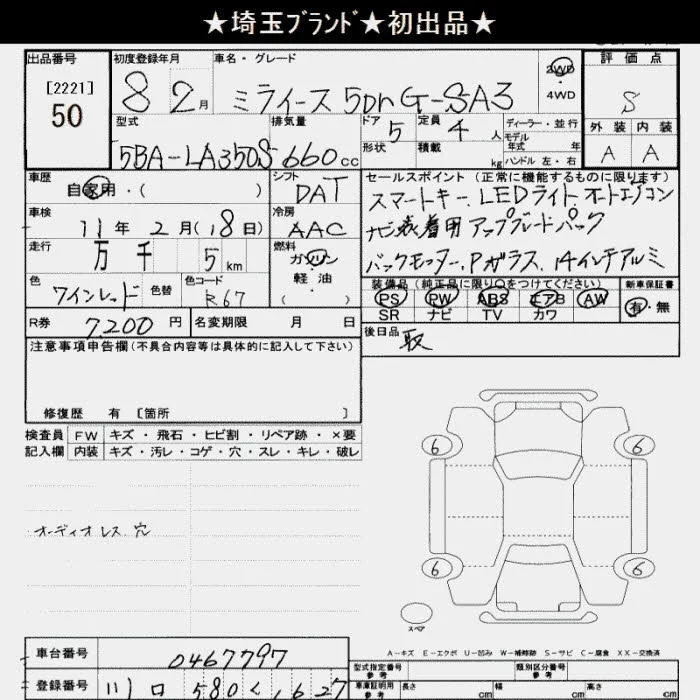 ★埼玉ﾌﾞﾗﾝﾄﾞ★初出品★
出品番号 初度登録年月 車名・グレード 2WD 評価点
[2221] 50 8 2月 ミライース 5Dr G-SA3 4WD S
型式 排気量 ドア 5 定員 4人 ディーラー・並行 外装 内装
モデル年式 年式
5BA-LA350S 660cc 形状 積載 kg ハンドル 左・右 A A
車歴 自家用・( ) シフト DAT セールスポイント (正常に機能するものに限ります)
スマートキー、LEDライト、オートエアコン
車検 11年 2月(18日) 冷房 AAC ナビ装着用アップグレードパック
走行 万 千 5km 燃料 ガソリン バックモニター、Pガラス、14インチアルミ
軽油 ( )
色 ワインレッド 色替 色コード R67 装備品 (純正品に限り○をつけてください) 新車保証書
PS PW ABS エアB AW 有・無
SR ナビ TV カワ
R券 7200円 名変期限 月 日 後日品 取
注意事項申告欄(不具合内容等は具体的に記入して下さい)
修復歴 有 [箇所 ]
検査員 FW キズ・飛石・ヒビ割・リペア跡・×要
記入欄 内装 キズ・汚レ・コゲ・穴・スレ・キレ・破レ
6 6
オーディオレス 穴
6 6
スペア
A－キズ E－エクボ U－凹み W－補修跡 S－サビ C－腐食 XX－交換済
車台番号 0467797 型式指定番号 参考 類別区分番号 参考
登録番号 川口 580 く 1627 車庫証明用 参考 長さ cm 幅 cm 高さ cm